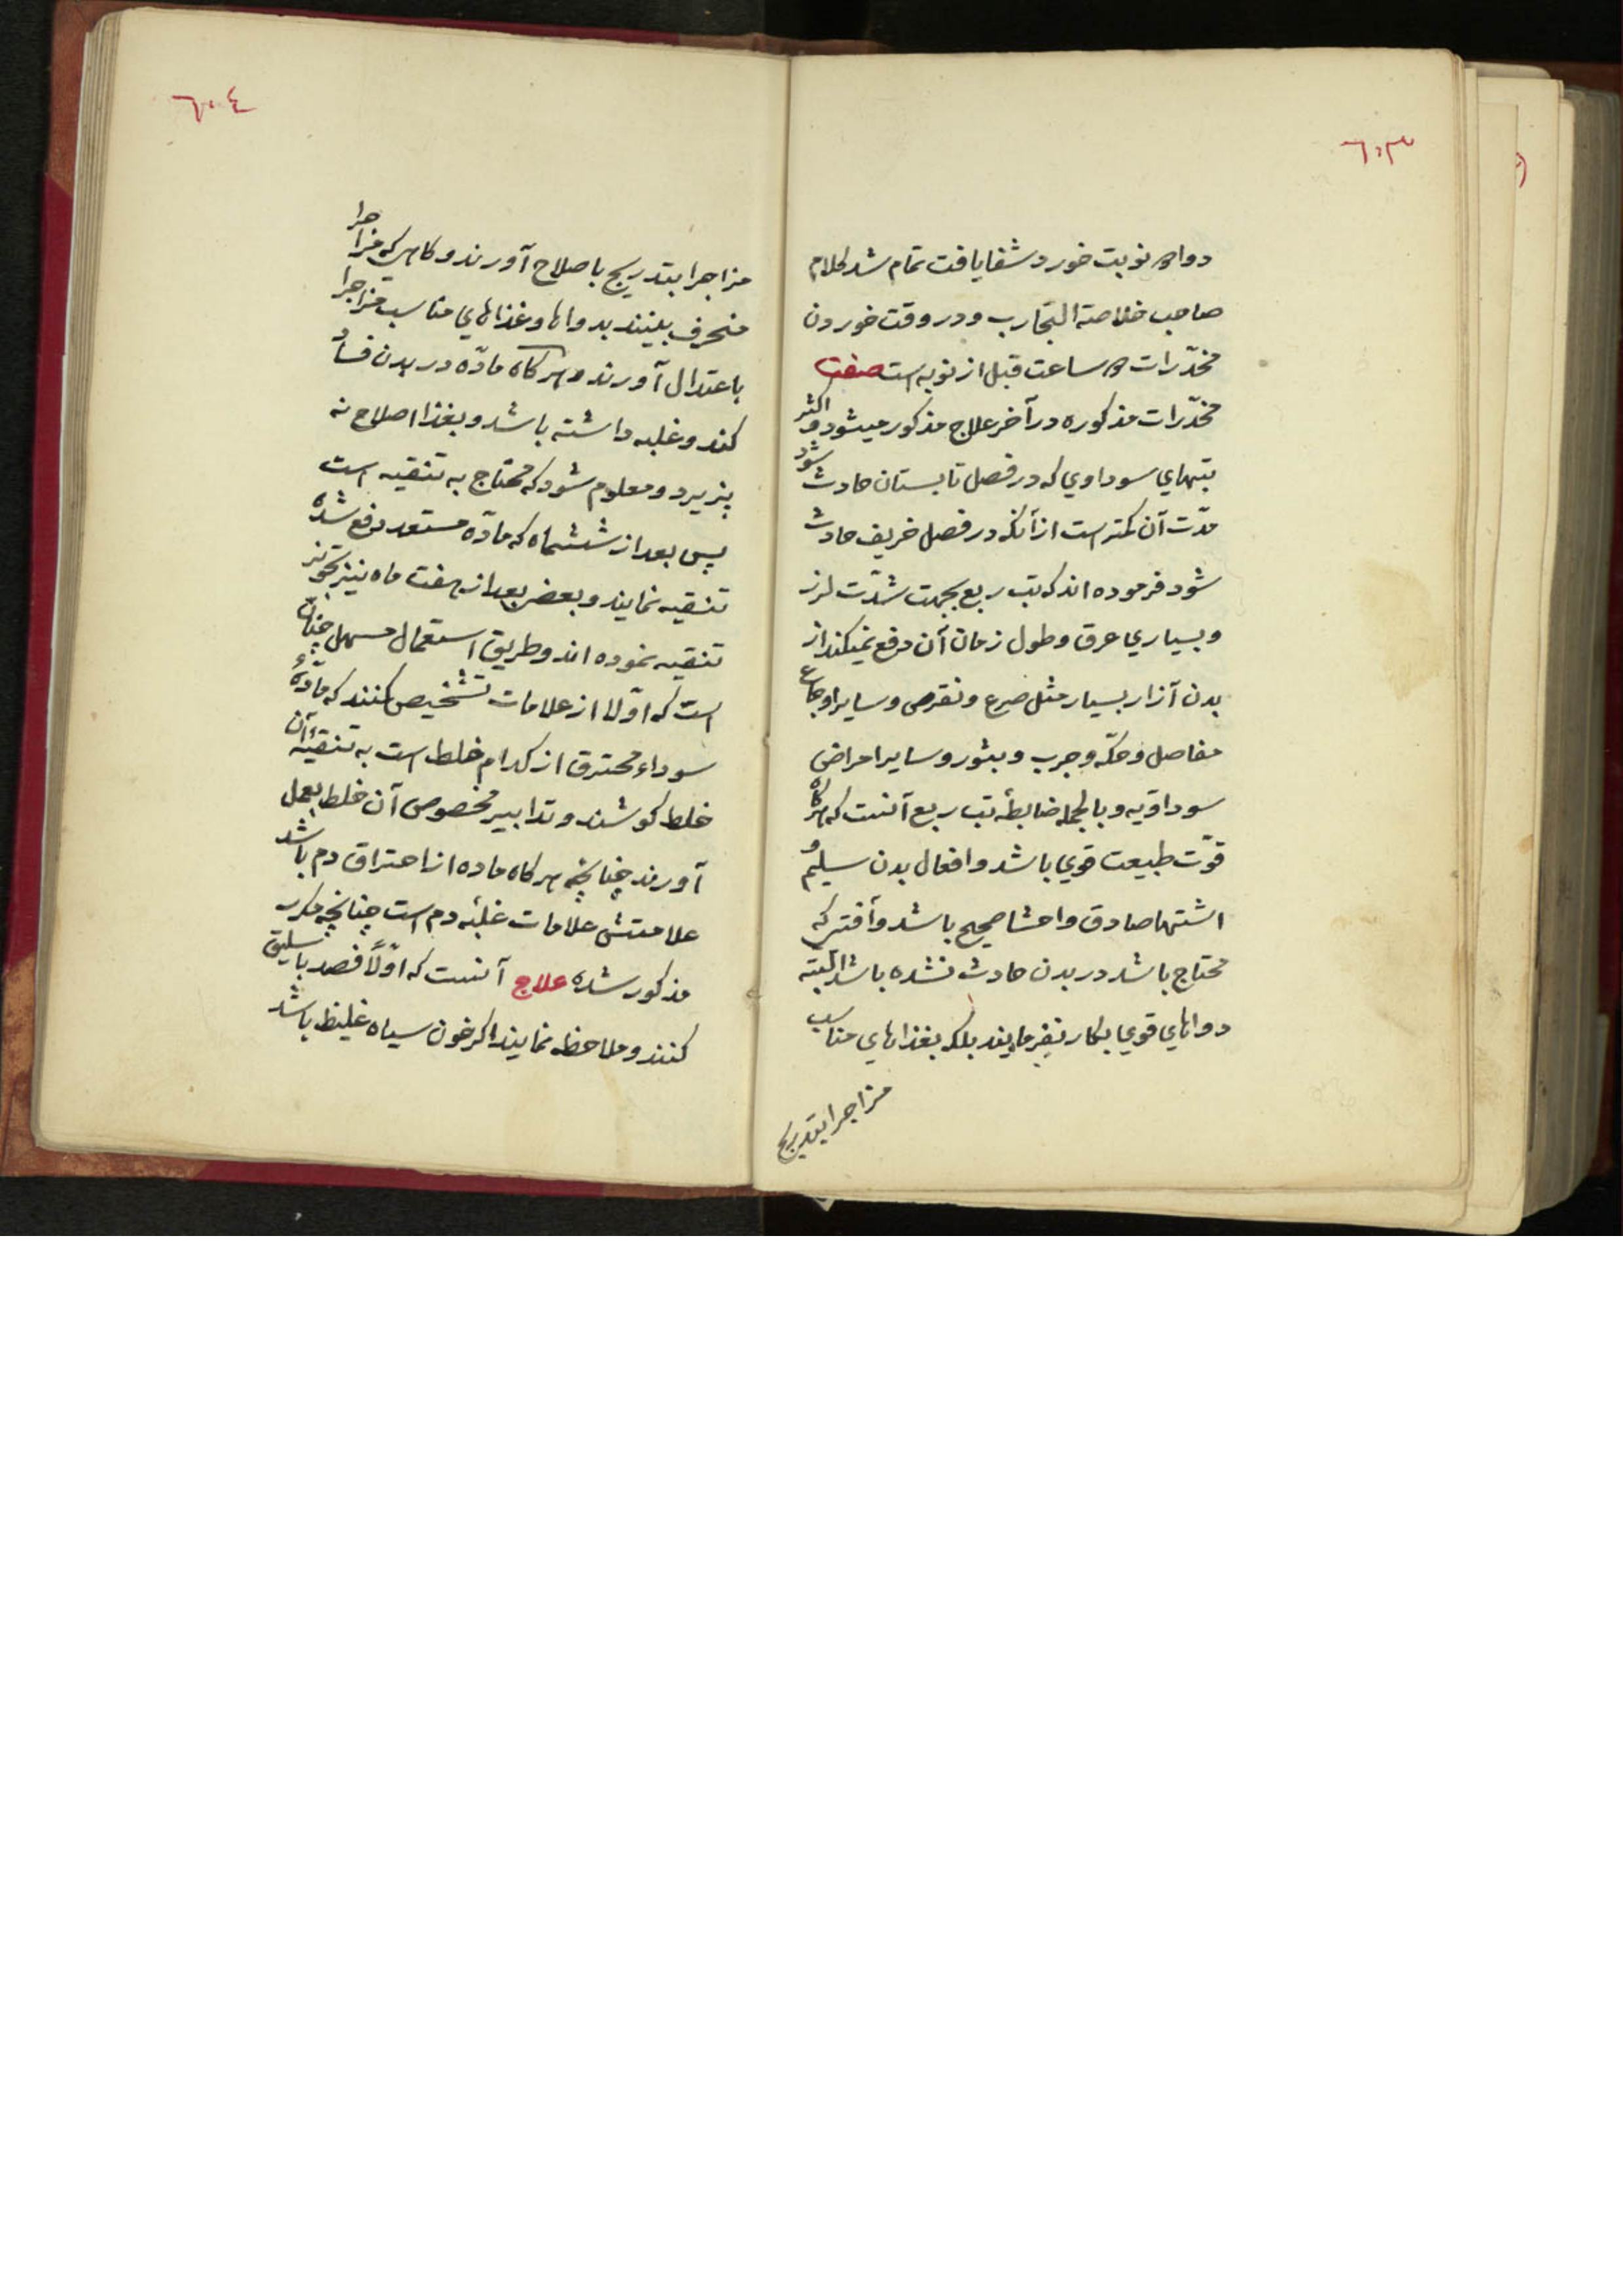 ٦٠٣
دوا ٥ نوبت خورد شفا یافت تمام شد کلام
صاحب خلاصة التجارب و در وقت خوردن
مخدّرات ٥ ساعت قبل از نوبه است صفت
مخدّرات مذکوره در آخر علاج مذکور میشود و اکثر
تبهاي سوداوي که در فصل تابستان حادث شود
مدّت آن کمتر است از آنکه در فصل خریف حادث
شود فرموده اند که تب ربع بجهت شدّت لرز
و بسیاري عرق و طول زمان آن دفع میکند از
بدن آزار بسیار مثل صرع و نقرص و سایر اوجاع
مفاصل و حکّه و جرب و بثور و سایر امراض
سوداویّه و بالجمله ضابطۀ تب ربع آنست که هرکاه
قوّت طبیعت قوي باشد و افعال بدن سلیم و
اشتها صادق و احشا صحیح باشد و آفتی که
محتاج باشد در بدن حادث نشده باشد البته
دواهاي قوي بکار نفرمایند بلکه بغذاهاي مناسب
مزاجرا بتدریج
٦٠٤
مزاجرا بتدریج باصلاح آورند و کاهی که مزاجرا
منحرف بینند بدواها و غذاهاي مناسب مزاجرا
باعتدال آورند و هرکاه مادّه در بدن فساد
کند و غلبه داشته باشد و بغذا اصلاح نه
پذیرد و معلوم شود که محتاج به تنقیه است
پس بعد از ششماه که مادّه مستعد دفع شده
تنقیه نمایند و بعضی بعد از هفت ماه نیز تجویز
تنقیه نموده اند و طریق استعمال مسهل چنان
است که اوّلا از علامات تشخیص کنند که مادّۀ
سوداء محترق از کدام خلط است به تنقیۀ آن
خلط کوشند و تدابیر مخصوص آن خلط بعمل
آورند چنانچه هرکاه ماده از احتراق دم باشد
علامتش علامات غلبۀ دم است چنانچه مکرر
مذکور شده علاج آنست که اوّلاً فصد باسلیق
کنند و ملاحظه نمایند اکر خون سیاه غلیظ باشد